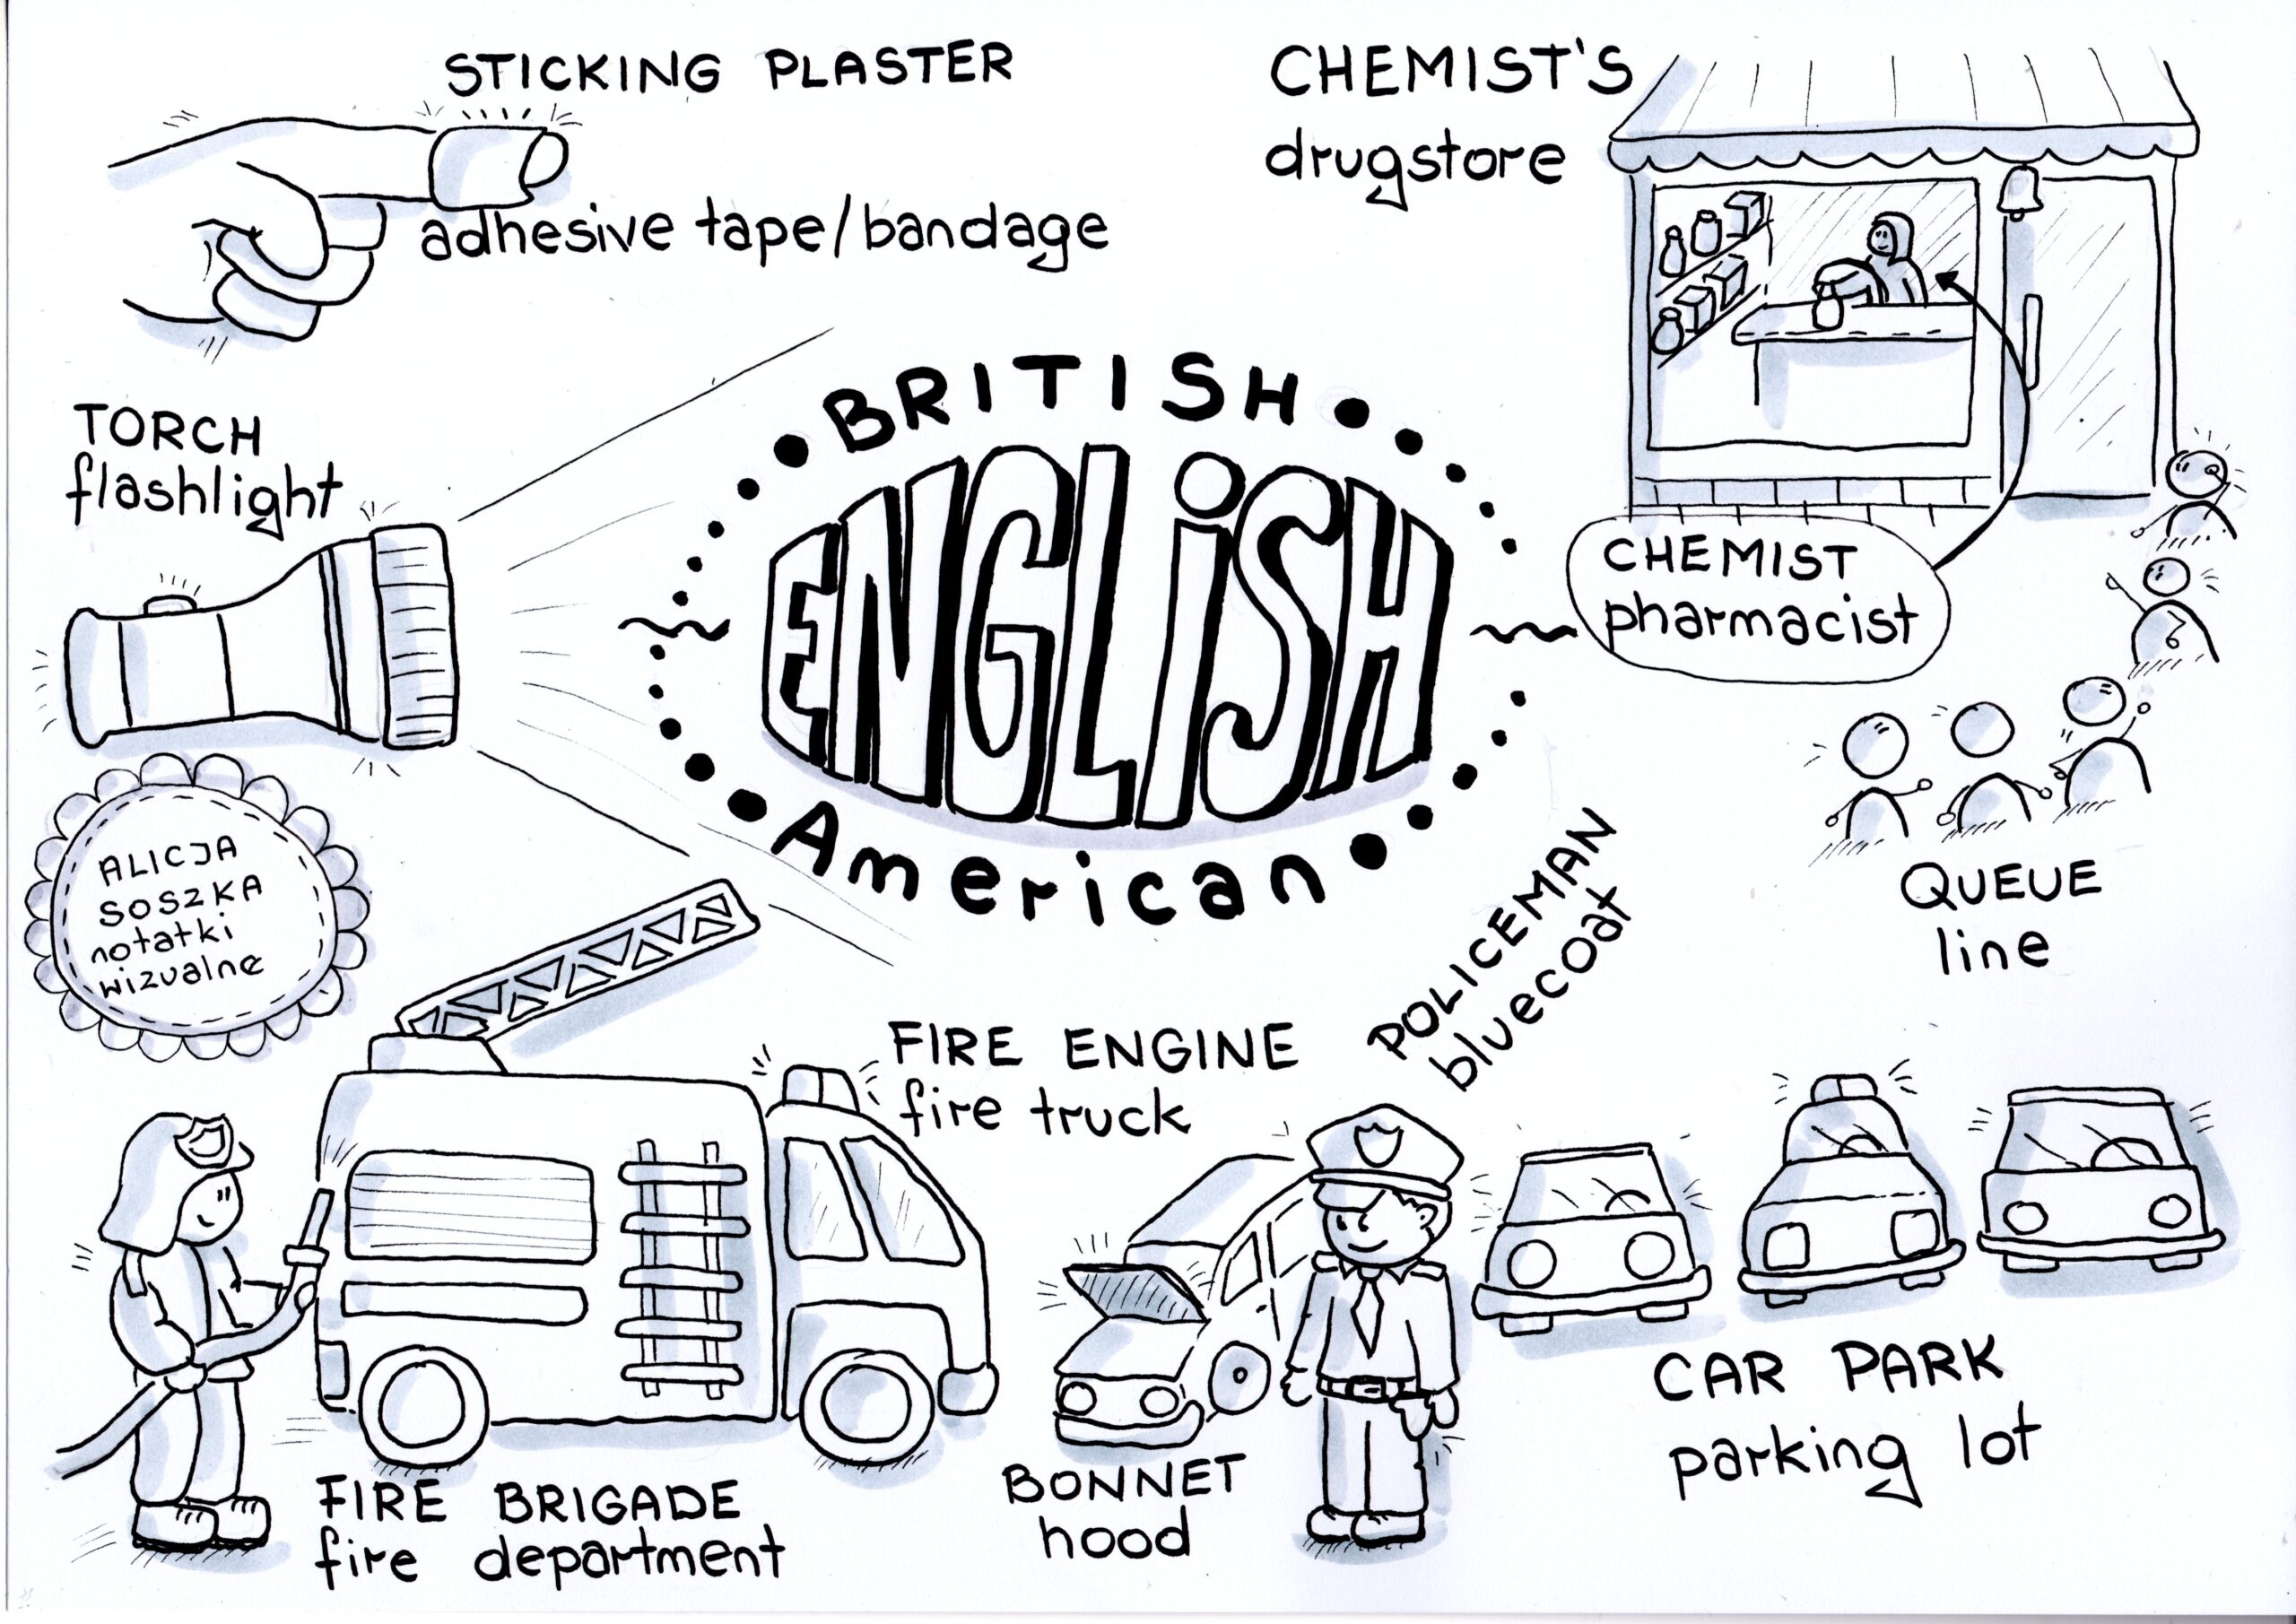 STICKING PLASTER
adhesive tape/bandage
CHEMIST'S
drugstore
TORCH
flashlight
BRITISH
ENGLiSH
American
CHEMIST
pharmacist
QUEUE
line
ALICJA
SOSZKA
notatki
wizualne
POLICEMAN
bluecoat
FIRE ENGINE
fire truck
CAR PARK
parking lot
BONNET
hood
FIRE BRIGADE
fire department